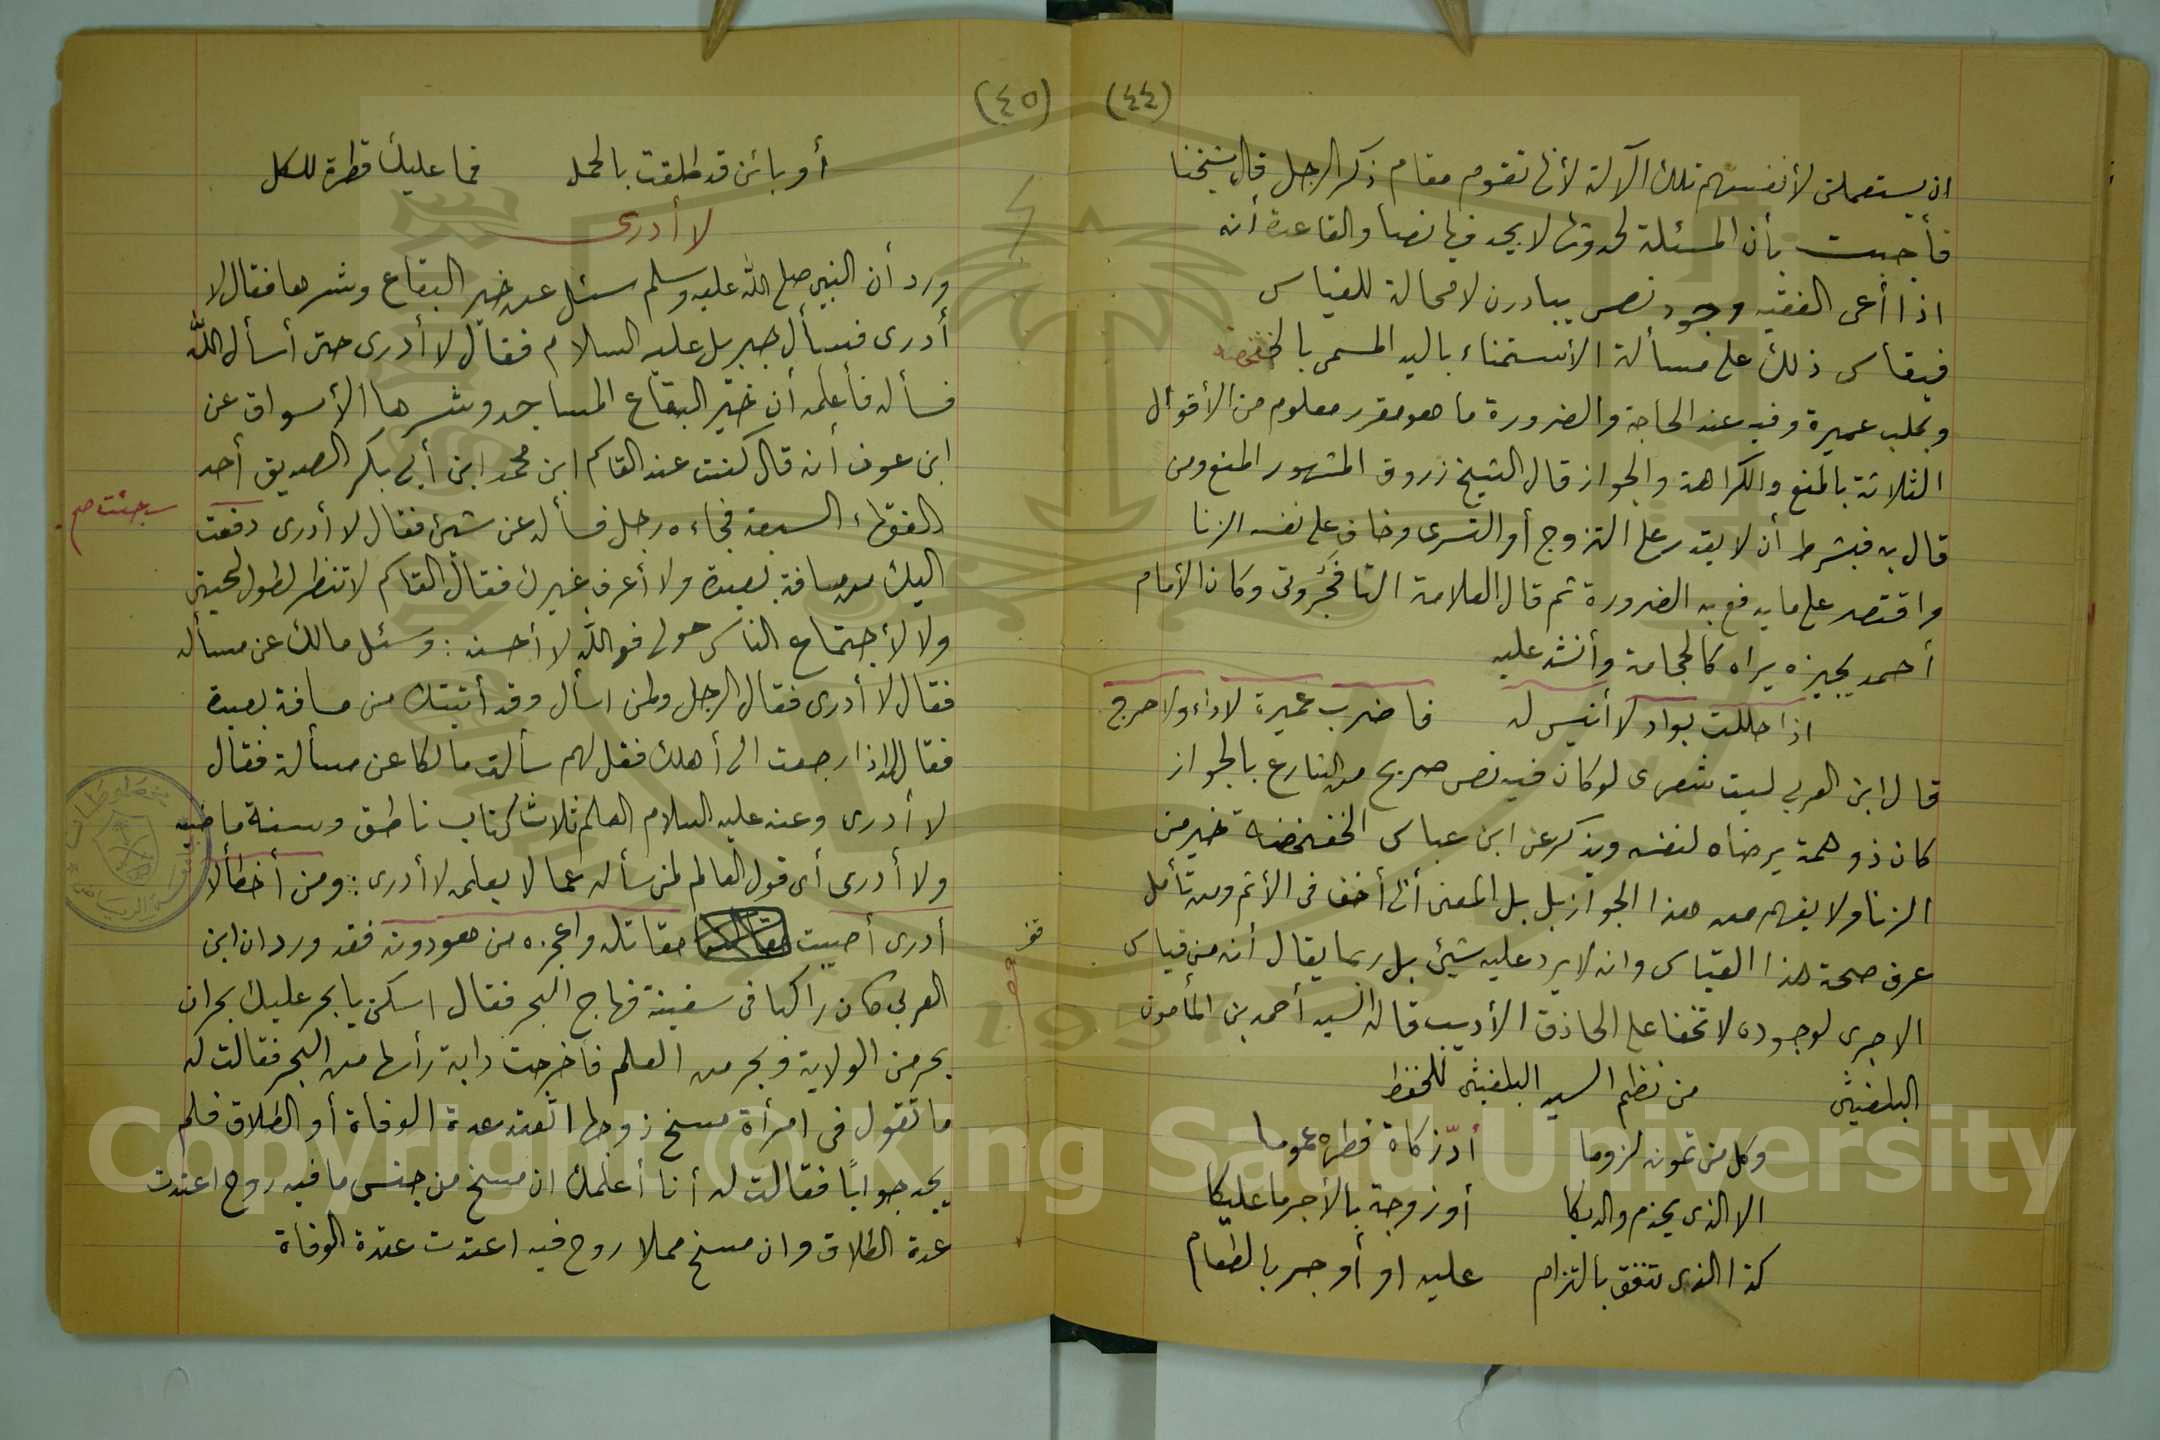 (٤٤)
ان يستعملن لأنفسهم تلك الآلة لأنها تقوم مقام ذكر الرجل قال شيخنا
فأجبت بأن المسئلة لحدوثها لا يجد فيها نصا والقاعدة أنه
اذا أعى الفقيه وجود نص يبادرن لا محالة للقياس
فيقاس ذلك على مسألة الأستمناء باليد المسمى بالخضخضة
وبجلب عميرة وفيه عند الحاجة والضرورة ما هو مقرر معلوم من الأقوال
الثلاثة بالمنع والكراهة والجواز قال الشيخ زروق المشهور المنع ومن
قال به فبشرط أن لا يقدر على التزوج أو التسرى وخاف على نفسه الزنا
واقتصر على ما يدفع به الضرورة ثم قال العلامة التافجروتى وكان الأمام
أحمد يجيزه يراه كالحجامة وأنشد عليه
اذا حللت بواد لا أنيس له فاضرب عميرة لا داء ولا حرج
قال ابن العربي ليت شعرى لو كان فيه نص صريح من الشارع بالجواز
كان ذو همة يرضاه لنفسه ويذكر عن ابن عباس الخضخضه خير من
الزنا ولا يفهم من هذا الجواز بل بل المعنى أنها أخف فى الأثم ومن تأمل
عرف صحة هذا القياس وانه لا يرد عليه شيئ بل ربما يقال أنه من قياس
الاحرى لوجوده لا تخفا على الحاذق الأديب قاله السيد أحمد بن المأمون
البلغيثى من نظم السيد البلغيثى للحفظ
وكل من تمونه لزوما أدّ زكاة فطره عموما
الا الذى يخدم والديكا أو زوجة بالأجر ما عليكا
كذا الذى تنفق بالتزام عليه او أوجر بالطعام
(٤٥)
أو بائن قد طلقت بالحمل فما عليك فطرة للكل
لا أدرى
ورد أن النبي صلى الله عليه وسلم سئل عن خير البقاع وشرها فقال لا
أدرى فسأل جبريل عليه السلام فقال لا أدرى حتى أسأل الله
فسأله فأعلمه أن خير البقاع المساجد وشرها الأسواق عن
ابن عوف أنه قال كنت عند القاسم ابن محمد ابن أبي بكر الصديق أحد
الفقهاء السبعة فجاءه رجل فسأله عن شيئ فقال لا أدرى دفعت
جئت صح
اليك من مسافة بعيدة ولا أعرف غيرك فقال القاسم لا تنظر لطول لحيتى
ولا لأجتماع الناس حولى فو الله لا أحسنه : وسئل مالك عن مسأله
فقال لا أدرى فقال الرجل ولمن اسأل وقد أتيتك من مسافة بعيدة
فقال له اذا رجعت الى أهلك فقل لهم سألت مالكا عن مسألة فقال
لا أدرى وعنه عليه السلام العلم ثلاث كتاب ناطق وسنة ماضيه
ولا أدرى أى قول العالم لمن سأله عما لا يعلمه لا أدرى : ومن أخطأ لا
أدرى أصيبت مقاتله واعجزه من هو دونه فقد ورد ان ابن
قف
العربي كان راكبا فى سفينة فهاج البحر فقال اسكن يا بحر عليك بحران
بحر من الولاية وبحر من العلم فأخرجت دابة رأسها من البحر فقالت له
ما تقول فى امرأة مسخ زوجها اتعتد عدة الوفاة أو الطلاق فلم
يجد جوابًا فقالت له أنا أعلمك ان مسخ من جنس ما فيه روح اعتدت
عدة الطلاق وان مسخ مما لا روح فيه اعتدت عدة الوفاة
1957
Copyright © King Saud University